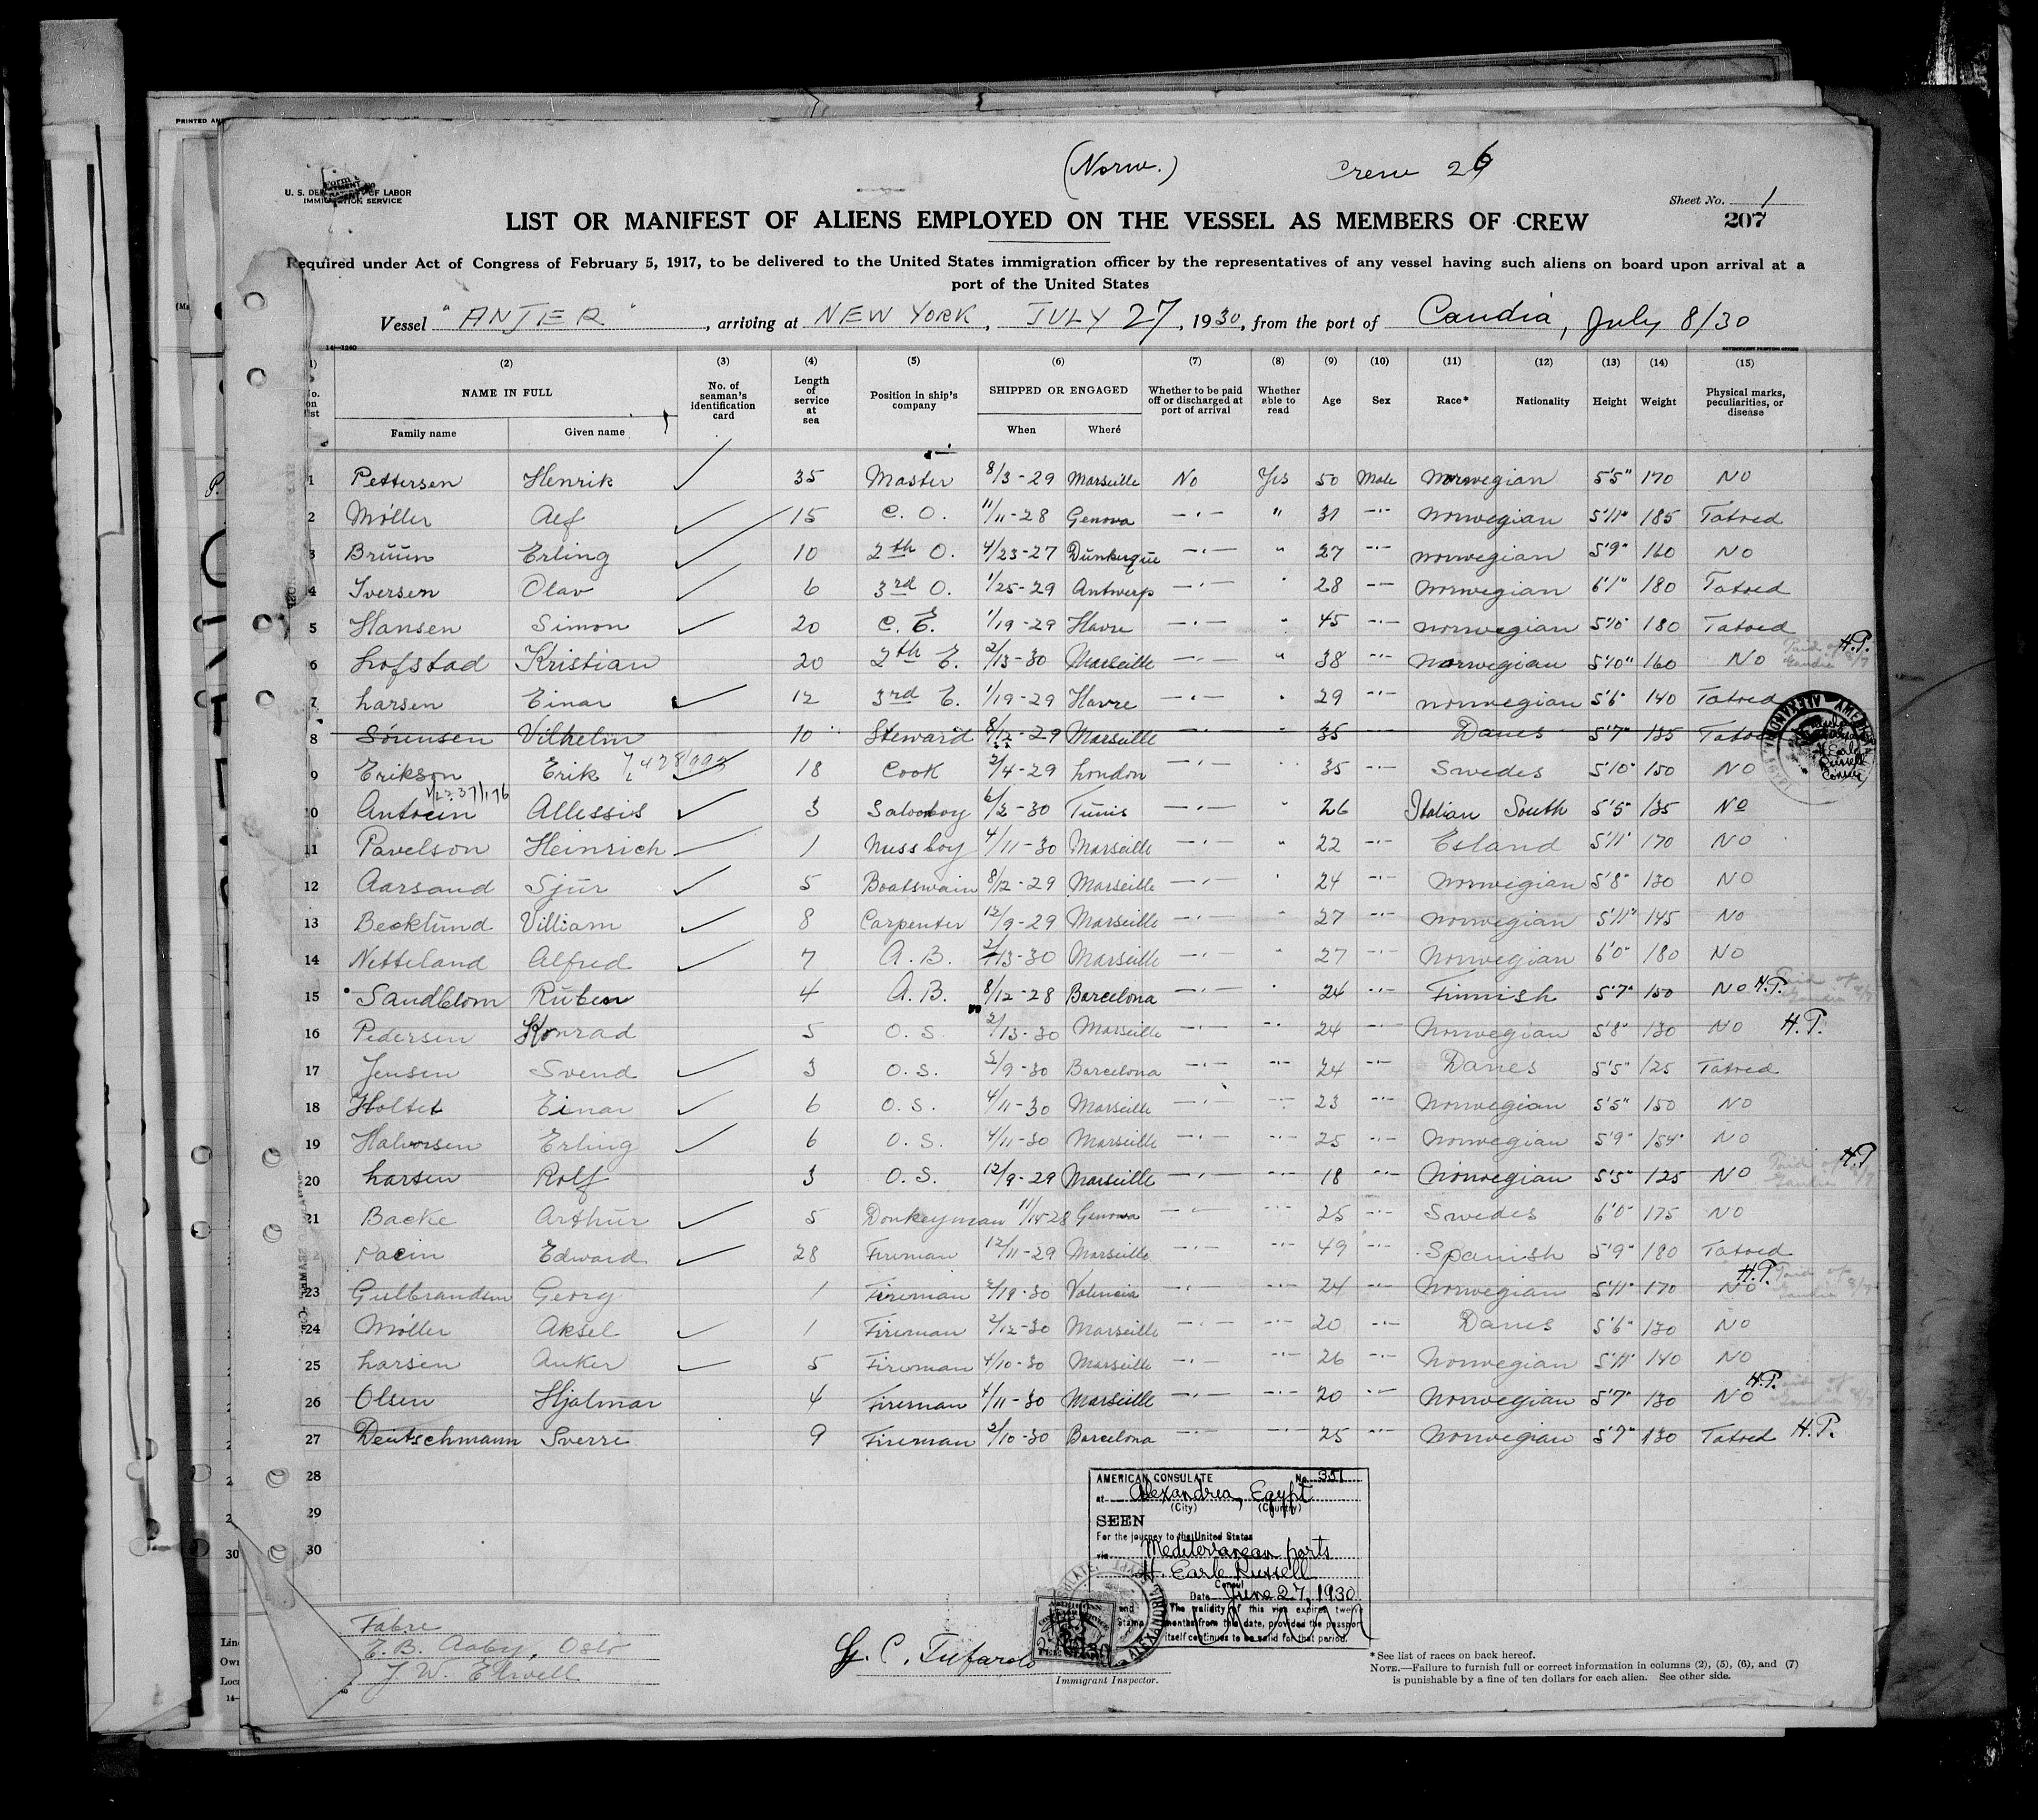 (Norw.) Crew 26
U. S. DEPARTMENT OF LABOR
IMMIGRATION SERVICE
Sheet No. 1
LIST OR MANIFEST OF ALIENS EMPLOYED ON THE VESSEL AS MEMBERS OF CREW 207
Required under Act of Congress of February 5, 1917, to be delivered to the United States immigration officer by the representatives of any vessel having such aliens on board upon arrival at a
port of the United States
Vessel "ANJER", arriving at NEW YORK, JULY 27, 1930, from the port of Candia, July 8/30
(2) (3) (4) (5) (6) (7) (8) (9) (10) (11) (12) (13) (14) (15)
NAME IN FULL No. of seaman's identification card Length of service at sea Position in ship's company SHIPPED OR ENGAGED Whether to be paid off or discharged at port of arrival Whether able to read Age Sex Race* Nationality Height Weight Physical marks, peculiarities, or disease
Family name Given name When Where
1 Pettersen Henrik 35 Master 8/3-29 Marseille No Yes 50 Male Norwegian 5'5" 170 No
2 Møller Alf 15 C. O. 11/11-28 Genova -"- " 31 -"- Norwegian 5'11" 185 Tatoed
3 Bruun Erling 10 2th O. 4/23-27 Dunkerque -"- " 27 -"- Norwegian 5'9" 160 No
4 Iversen Olav 6 3rd O. 1/25-29 Antwerp -"- " 28 -"- Norwegian 6'1" 180 Tatoed
5 Hansen Simon 20 C. E. 1/19-29 Havre -"- " 45 -"- Norwegian 5'10" 180 Tatoed
6 Lofstad Kristian 20 2th E. 2/13-30 Marseille -"- " 38 -"- Norwegian 5'10" 160 No Paid of Candia 8/7 H.P.
7 Larsen Einar 12 3rd E. 1/19-29 Havre -"- " 29 -"- Norwegian 5'6" 140 Tatoed
8 Sørensen Vilhelm 10 Steward 8/12-29 Marseille 35 Danes 5'7" 135 Tatoed
9 Erikson Erik 18 Cook 2/4-29 London -"- " 35 -"- Swedes 5'10" 150 No
10 Allessis 3 6/2-30 Tunis -"- " 26 Italian South 5'5" 135 No
11 Pavelson Heinrich 1 Messboy 4/11-30 Marseille -"- " 22 -"- Esland 5'11" 170 No
12 Aarsand Sjur 5 Boatswain 8/12-29 Marseille -"- " 24 -"- Norwegian 5'8" 130 No
13 Becklund Villiam 8 Carpenter 12/9-29 Marseille -"- " 27 -"- Norwegian 5'11" 145 No
14 Netteland Alfred 7 A. B. 2/13-30 Marseille -"- " 27 -"- Norwegian 6'0" 180 No
15 Sandblom Ruben 4 A. B. 8/12-28 Barcelona -"- " 24 -"- Finnish 5'7" 150 No H.P. Paid of Candia 8/7
16 Pedersen Konrad 5 O. S. 2/13-30 Marseille -"- -"- 24 -"- Norwegian 5'8" 130 No H.P.
17 Jensen Svend 3 O. S. 5/9-30 Barcelona -"- -"- 24 -"- Danes 5'5" 125 Tatoed
18 Holtet Einar 6 O. S. 4/11-30 Marseille -"- -"- 23 -"- Norwegian 5'5" 150 No
19 Halvorsen Erling 6 O. S. 4/11-30 Marseille -"- -"- 25 -"- Norwegian 5'9" 154 No
20 Larsen Rolf 3 O. S. 12/9-29 Marseille -"- -"- 18 -"- Norwegian 5'5" 125 No Paid of Candia 8/7 H.P
21 Backe Arthur 5 Donkeyman 11/15-28 Genova -"- -"- 25 -"- Swedes 6'0" 175 No
Edward 28 Fireman 12/11-29 Marseille -"- -"- 49 -"- Spanish 5'9" 180 Tatoed
23 Gulbrandsen Georg 1 Fireman 2/19-30 Valencia -"- -"- 24 -"- Norwegian 5'11" 170 No H.P. Paid of Candia 8/7
24 Møller Aksel 1 Fireman 2/12-30 Marseille -"- -"- 20 -"- Danes 5'6" 130 No
25 Larsen Anker 5 Fireman 4/10-30 Marseille -"- -"- 26 -"- Norwegian 5'11" 140 No
26 Olsen Hjalmar 4 Fireman 4/11-30 Marseille -"- -"- 20 -"- Norwegian 5'7" 130 No H.P. Paid of Candia 8/7
27 Deutschmann Sverre 9 Fireman 2/10-30 Barcelona -"- -"- 25 -"- Norwegian 5'7" 130 Tatoed H.P.
28
29
30
AMERICAN CONSULATE No. 351
at Alexandria, Egypt
(City) (Country)
SEEN
For the journey to the United States
via Mediterranean ports
H. Earle Russell
Consul
Date June 27, 1930
The validity of this visa expires twelve
months from this date, provided the passport
itself continues to be valid for that period.
Fabre
E. B. Aaby, Oslo
J. W. Elwell
G. C. Tufarolo
Immigrant Inspector.
*See list of races on back hereof.
NOTE.—Failure to furnish full or correct information in columns (2), (5), (6), and (7)
is punishable by a fine of ten dollars for each alien. See other side.